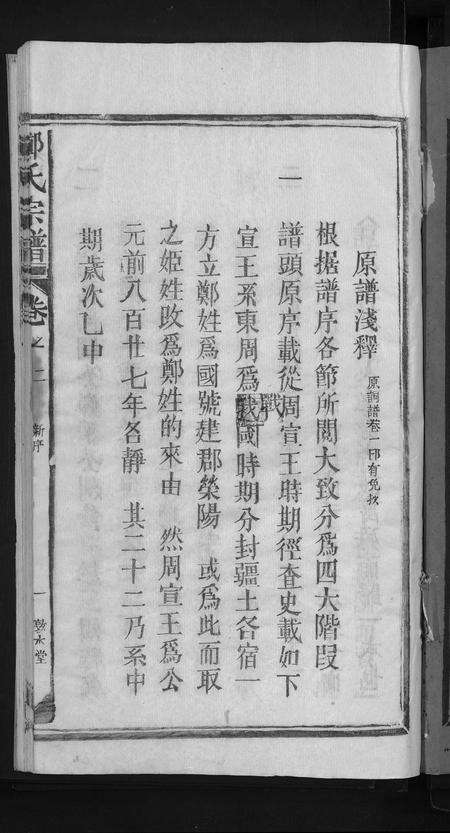 原譜淺釋 原詞譜卷一邱有免抄
根据譜序各節所閱大致分爲四大階段
一
譜頭原序載從周宣王時期徑查史載如下
宣王系東周爲戰國時期分封疆土各宿一
戰
方立鄭姓爲國號建郡榮陽 或爲此而取
之姬姓改爲鄭姓的來由 然周宣王爲公
元前八百廿七年各靜 其二十二乃系中
期歲次乙申
鄭氏宗譜 卷之二 新序 一 堂